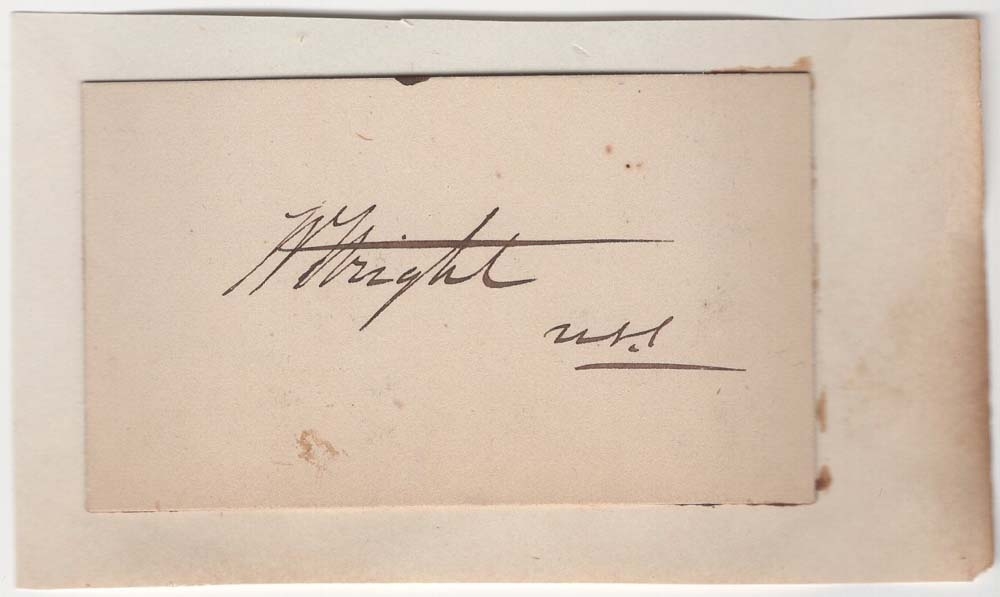 W Wright